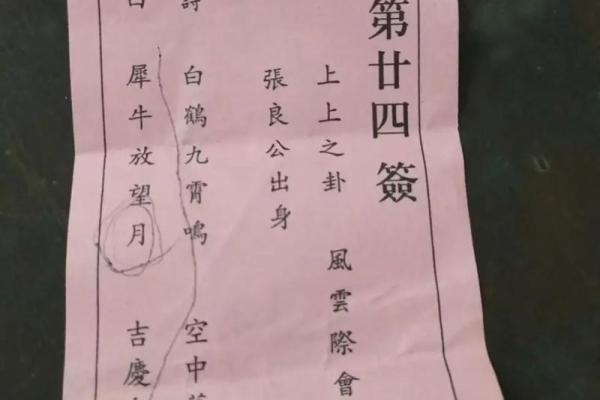 第廿四簽
上上之卦 風雲際會
張良公出身
詩 白鶴九霄鳴 空中
曰 犀牛放望月 吉慶